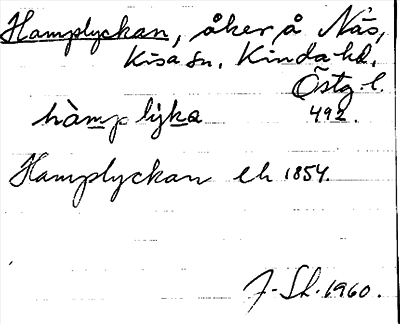 Hamplyckan, åker å Näs,
Kisa sn, Kinda hd,
Östg. l.
hàmp lỳka 492.
Hamplyckan ek 1854.
J. Sh. 1960.